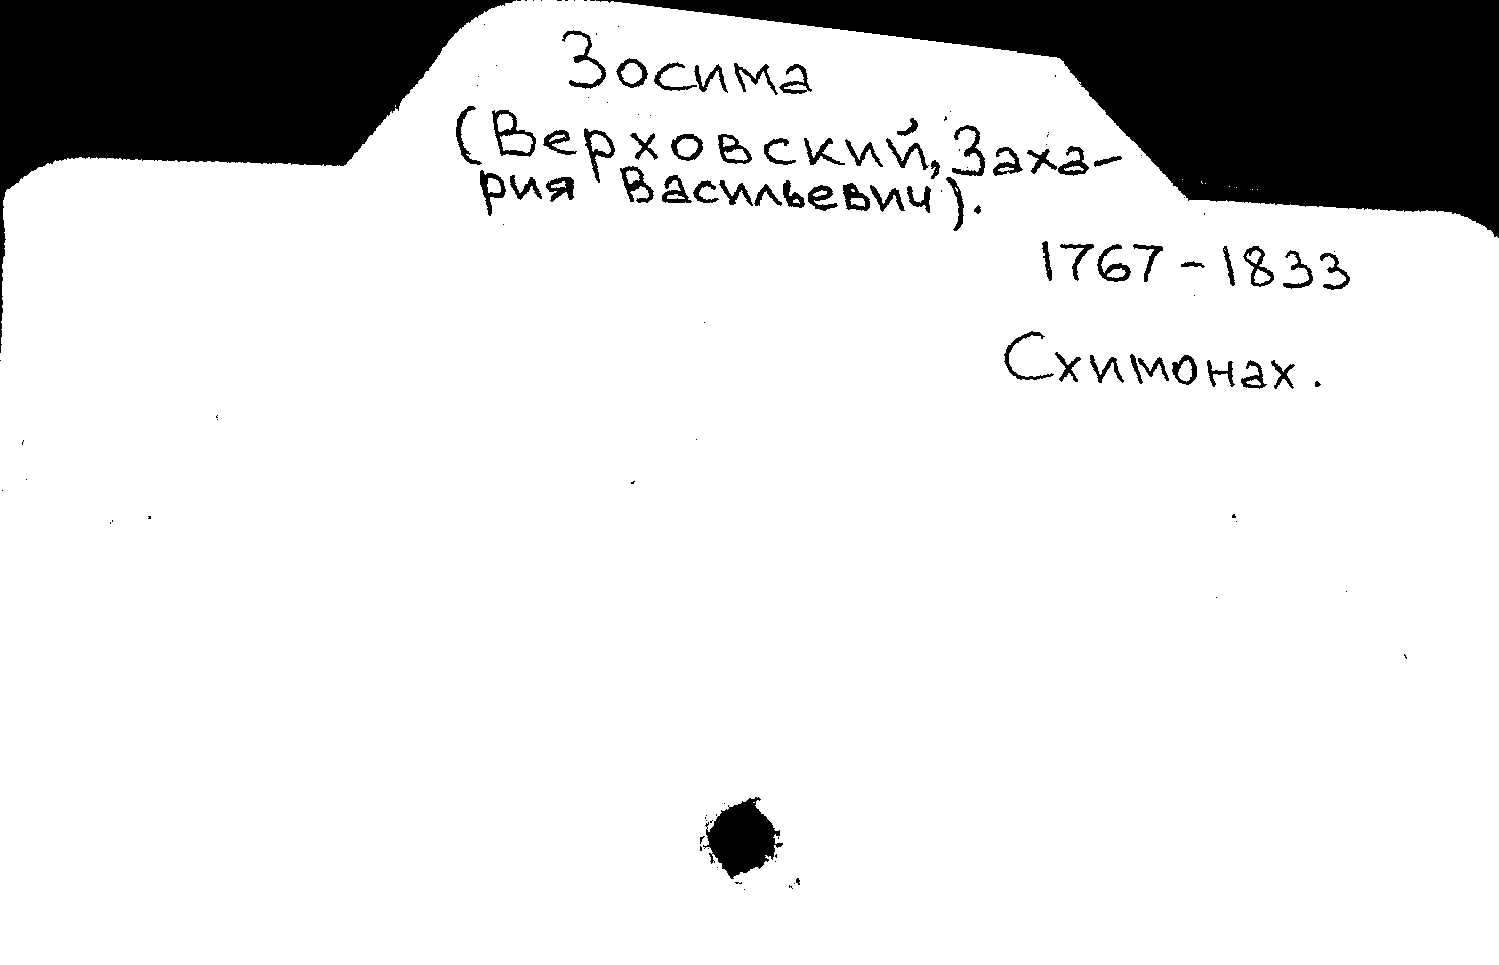 Зосима
(Верховский, Заха-
рия Васильевич).
1767-1833
Схимонах.